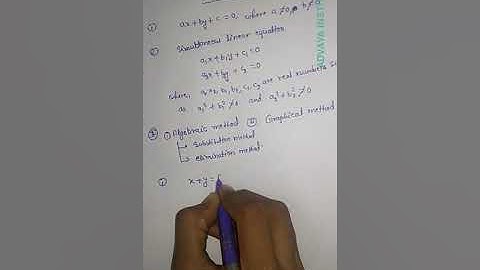 ① ax+by+c=0, where a≠0, b≠0
② Simultaneous linear equation
a₁x+b₁y+c₁=0
a₂x+b₂y+c₂=0
where, a₂, b₁, b₂, c₁, c₂ are real numbers
a₁²+b₁²≠0 and a₂²+b₂²≠0
③ ① Algebraic method ② Graphical method
→ substitution method
→ elimination method.
① x+y=